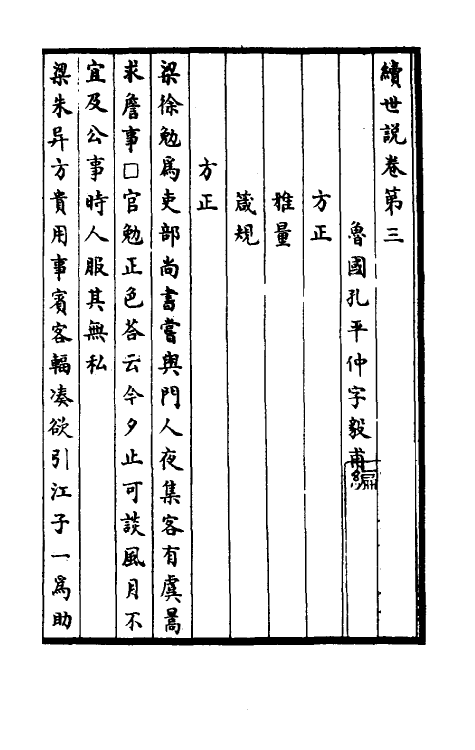 續世説卷第三
魯國孔平仲字毅甫編
方正
雅量
箴規
方正
梁徐勉爲吏部尚書嘗與門人夜集客有虞暠
求詹事□官勉正色荅云今夕止可談風月不
宜及公事時人服其無私
梁朱异方貴用事賓客輻凑欲引江子一爲助